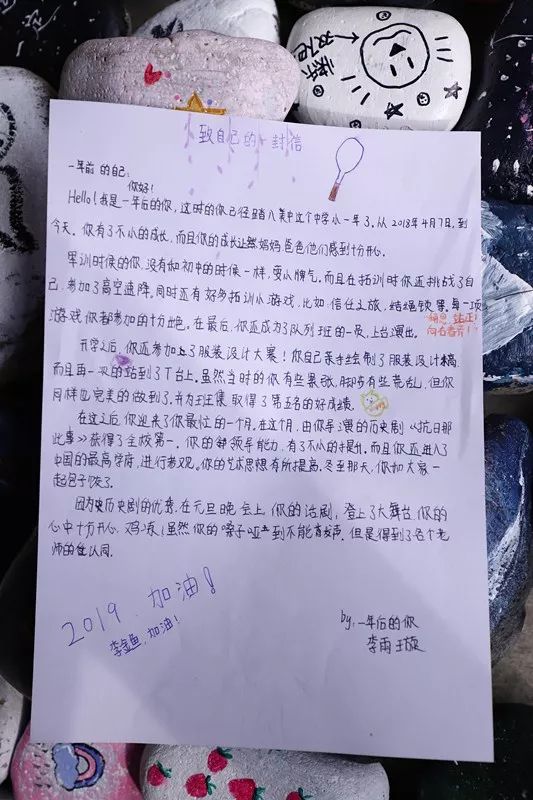 致自己的一封信
一年前的自己:
你好!
Hello!我是一年后的你,这时的你已经踏入美中这个中学小一年了。从2018年4月7日,到
今天。你有了不小的成长,而且你的成长让妈妈爸爸他们感到十分开心。
军训时候的你,没有如初中的时候一样,耍小脾气。而且在拓训时你还挑战了自
己,参加了高空速降。同时还有好多拓训小游戏,比如:信任之旅、结绳锁 等,每一项
游戏你都参加的十分出色。在最后,你还成为了队列班的一员,上台演出。
稍息,站正!
向右看齐!
开学之后,你还参加了服装设计大赛!你自己亲手绘制了服装设计稿,
而且再一次的站到了T台上。虽然当时的你有些紧张,脚步有些慌乱,但你
同样也完美的做到了,并为班集取得了第五名的好成绩。
在这之后,你迎来了你最忙的一个月,在这个月,由你导演的历史剧《抗日那
些事》获得了全校第一。你的领导能力,有了不小的提升。而且你还进入了
中国的最高学府,进行参观。你的艺术思想有所提高。冬至那天,你和大家一
起包了饺子。
因为历史剧的优秀,在元旦晚会上,你的话剧,登上了大舞台,你的
心中十分开心、鸡冻!虽然你的嗓子哑到不能再发声,但是得到了各个老
师的认同。
2019.加油!
李鱼,加油!
by:一年后的你
李雨璇